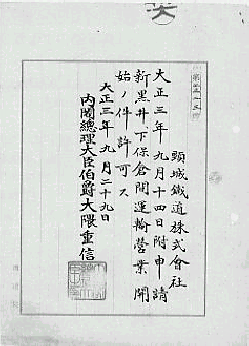 頸城鐵道株式會社
大正三年九月十四日附申請
新黒井下保倉間運輸營業開
始ノ件許可ス
大正三年九月二十九日
内閣總理大臣伯爵大隈重信